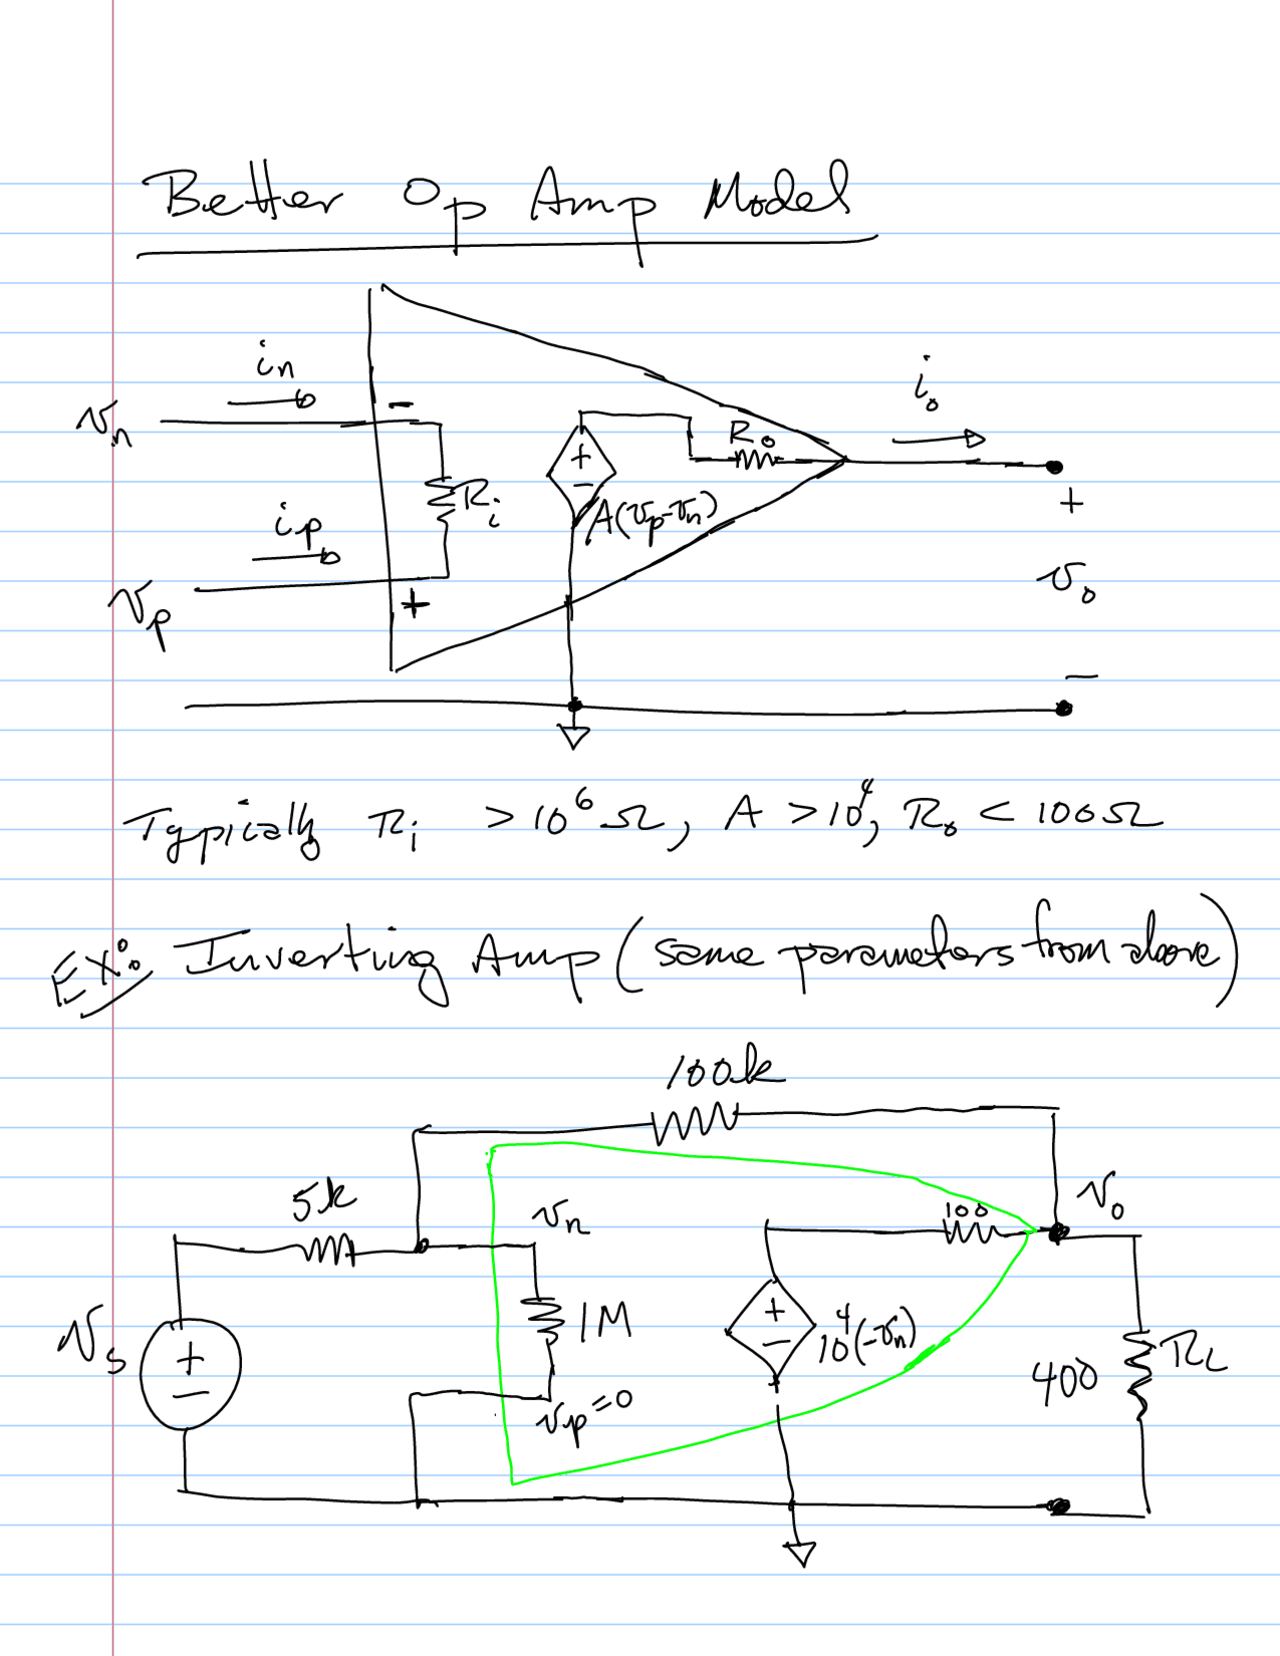 Better Op Amp Model
iₙ
i₀
vₙ
−
R₀
+
−
Rᵢ
A(vₚ-vₙ)
+
iₚ
v₀
vₚ
+
−
Typically Rᵢ > 10⁶ Ω, A > 10⁴, R₀ < 100Ω
Ex: Inverting Amp (same parameters from above)
100k
5k
vₙ
100
v₀
vₛ
+
−
1M
+
−
10⁴(-vₙ)
400
R_L
vₚ=0